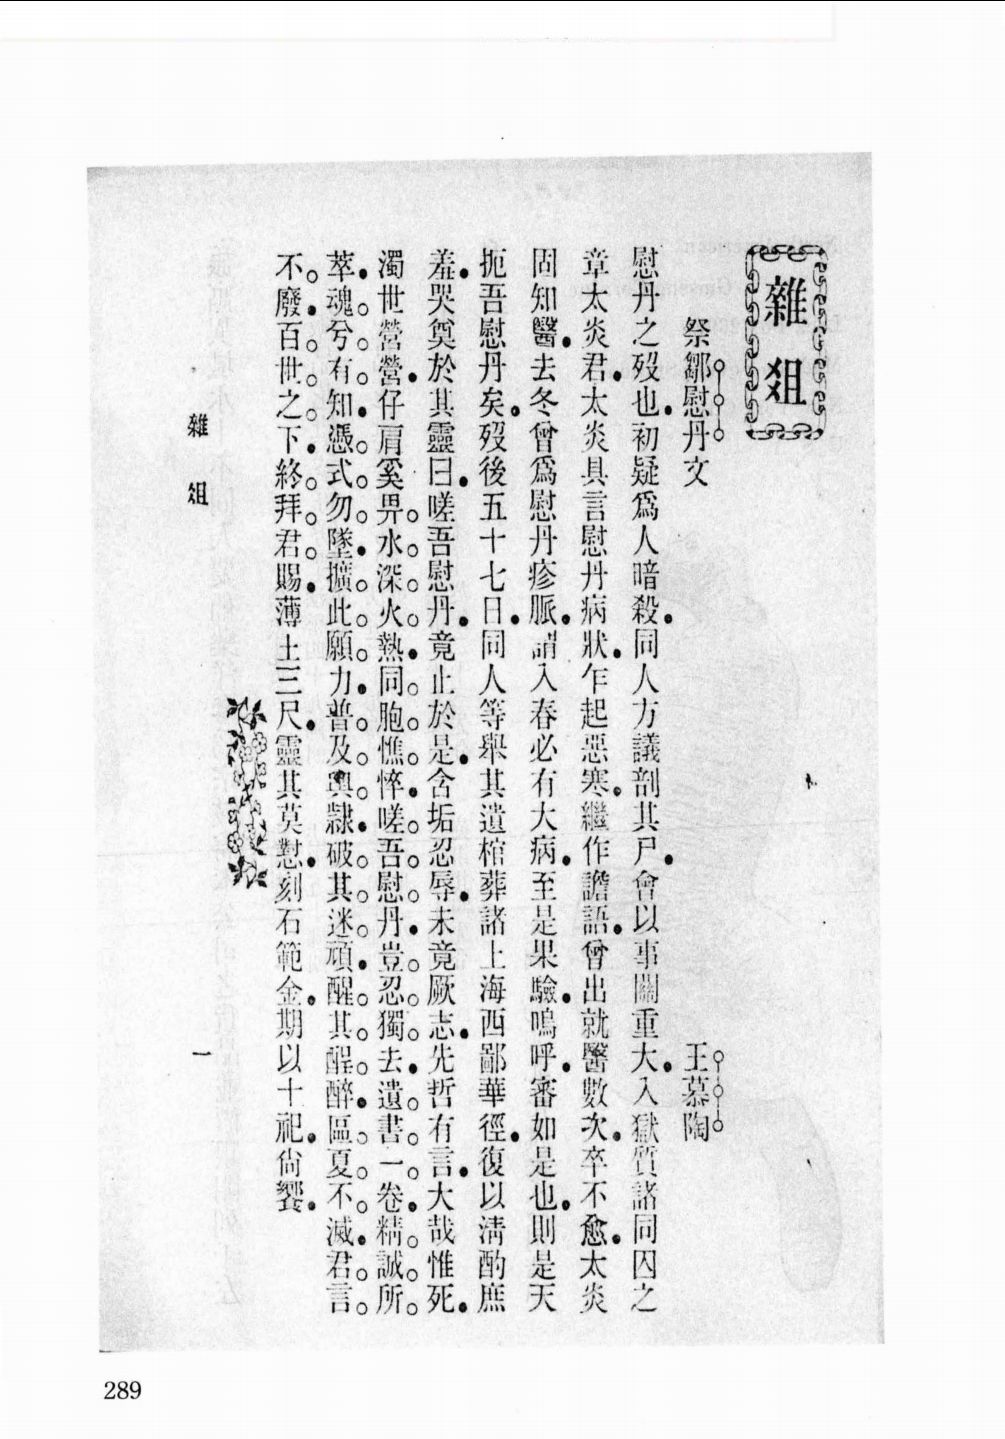 雜俎
祭鄒慰丹文
王慕陶
慰丹之歿也。初疑爲人暗殺。同人方議剖其尸。會以事關重大。入獄質諸同囚之
章太炎君。太炎具言慰丹病狀。乍起惡寒。繼作譫語。曾出就醫數次。卒不愈。太炎
固知醫。去冬曾爲慰丹疹脈。謂入春必有大病。至是果驗。嗚呼。審如是也。則是天
扼吾慰丹矣。歿後五十七日。同人等舉其遺棺葬諸上海西鄙華徑。復以淸酌庶
羞。哭奠於其靈曰。嗟吾慰丹。竟止於是。含垢忍辱。未竟厥志。先哲有言。大哉惟死。
濁世營營。仔肩奚畀。水深火熱。同胞憔悴。嗟吾慰丹。豈忍獨去。遺書一卷。精誠所
萃。魂兮有知。憑式勿墜。擴此願力。普及輿隸。破其迷頑。醒其酲醉。區夏不滅。君言
不廢。百世之下。終拜君賜。薄土三尺。靈其莫懟。刻石範金。期以十祀。尙饗。
雜俎
一
289